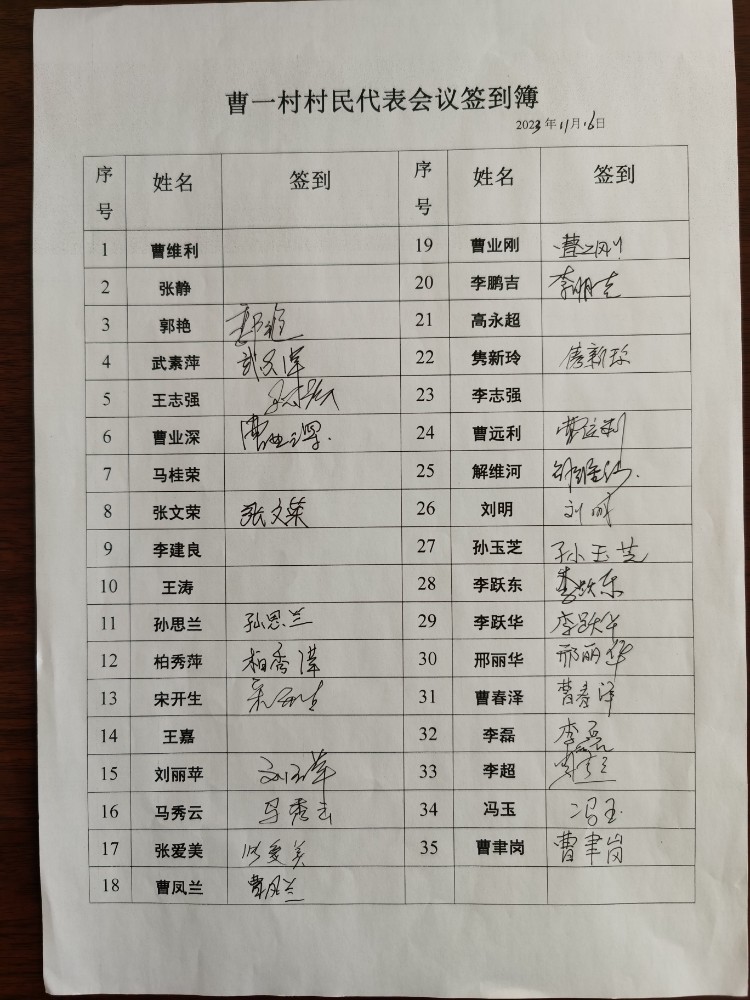 曹一村村民代表会议签到簿
2023年11月16日
序号 姓名 签到 序号 姓名 签到
1 曹维利 19 曹业刚 曹业刚
2 张静 20 李鹏吉 李鹏吉
3 郭艳 郭艳 21 高永超
4 武素萍 武素萍 22 隽新玲 隽新玲
5 王志强 王志强 23 李志强
6 曹业深 曹业深 24 曹远利 曹远利
7 马桂荣 25 解维河 解维河
8 张文荣 张文荣 26 刘明 刘明
9 李建良 27 孙玉芝 孙玉芝
10 王涛 28 李跃东 李跃东
11 孙思兰 孙思兰 29 李跃华 李跃华
12 柏秀萍 柏秀萍 30 邢丽华 邢丽华
13 宋开生 宋开生 31 曹春泽 曹春泽
14 王嘉 32 李磊 李磊
15 刘丽苹 刘丽苹 33 李超
16 马秀云 马秀云 34 冯玉 冯玉
17 张爱美 张爱美 35 曹聿岗 曹聿岗
18 曹凤兰 曹凤兰